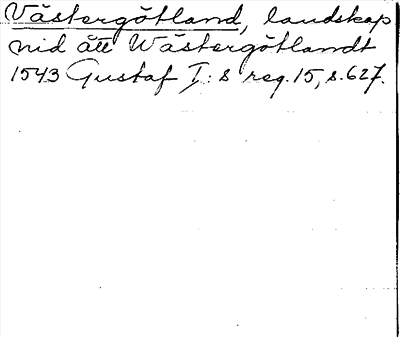 Västergötland, landskap
nid ått Wästergötlandt
1543 Gustaf I:s reg. 15, s. 627.